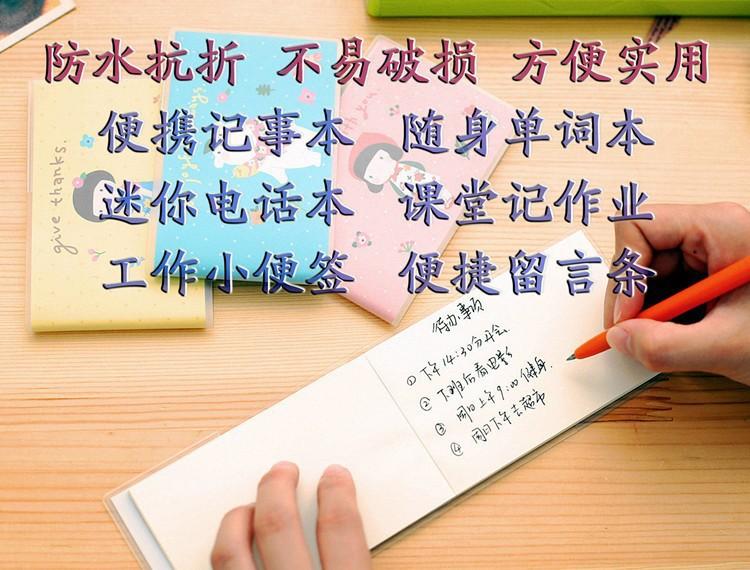 防水抗折 不易破损 方便实用
便携记事本 随身单词本
迷你电话本 课堂记作业
工作小便签 便捷留言条
give thanks.
待办事项
① 下午14:30分开会
② 下班后看电影
③ 周日上午9:00健身
④ 周日下午去超市